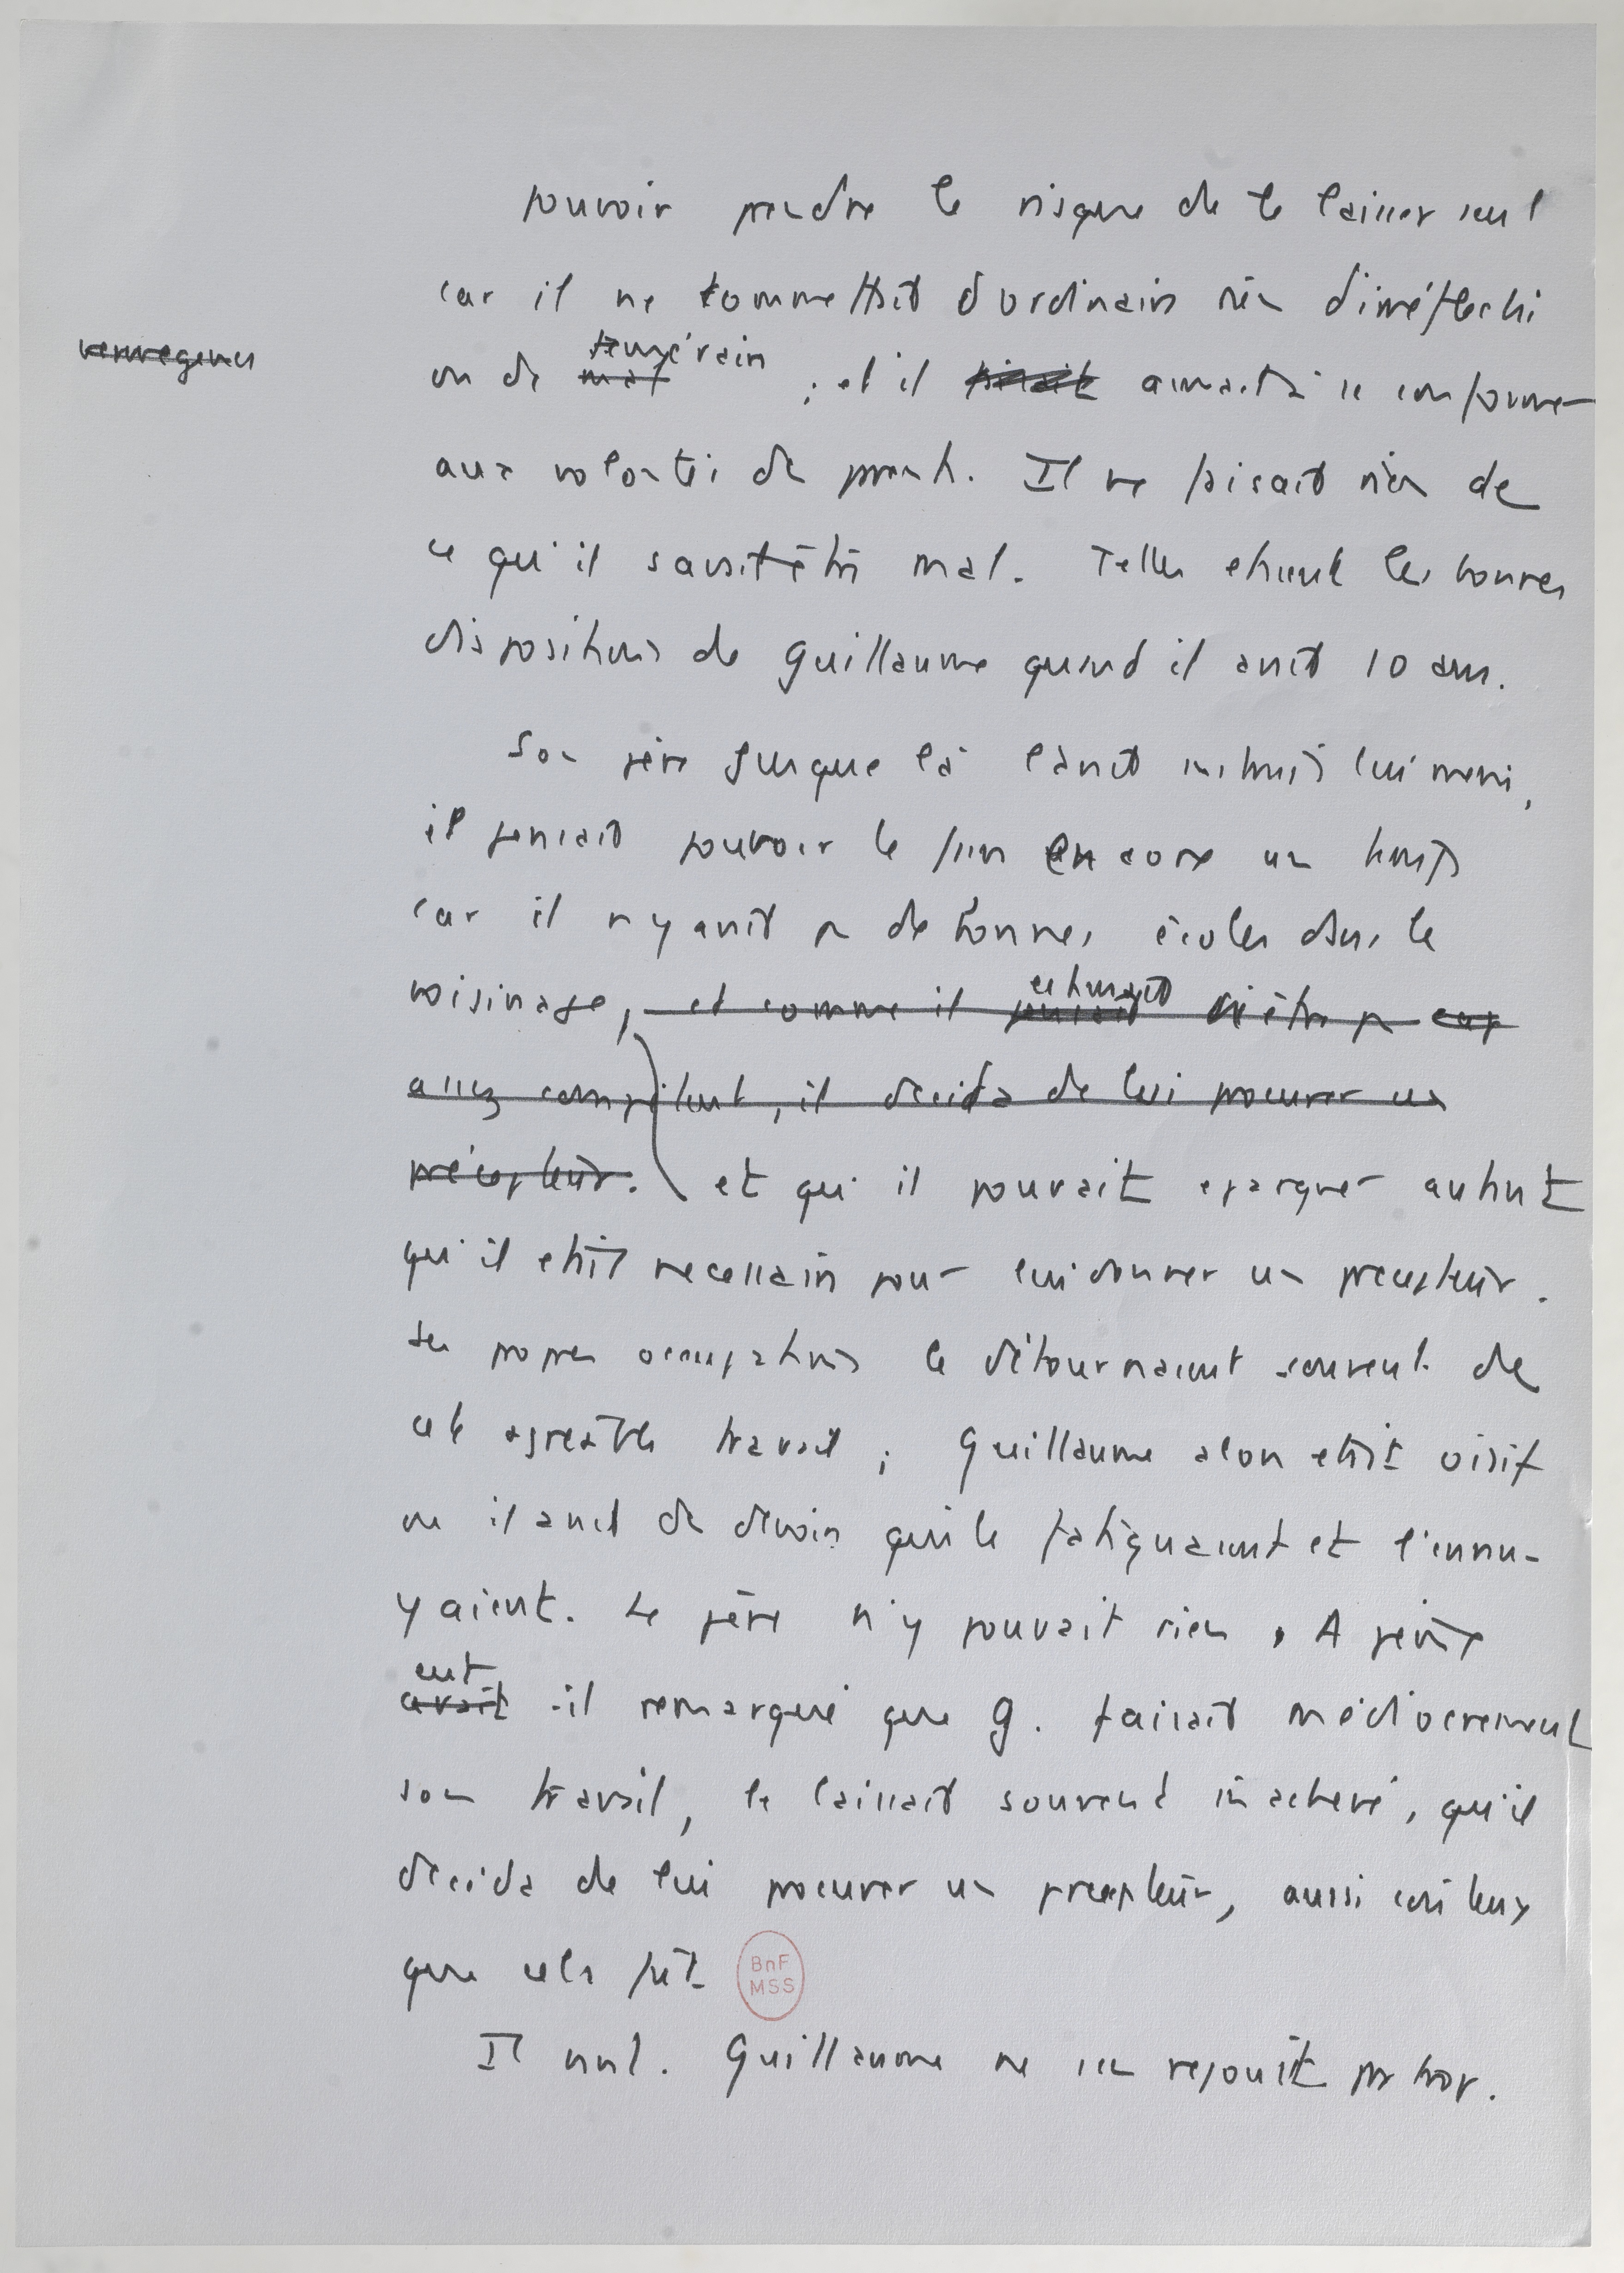 pouvoir prendre le risque de le laisser seul
car il ne commettait d'ordinaire rien d'irréfléchi
ou de mal téméraire ; et il aimait à se conformer
aux volontés de parents. Il ne faisait rien de
ce qu'il savait être mal. Telles etaient les bonnes
dispositions de Guillaume quand il avait 10 ans.
Son père jusque là l'avait instruit lui meme,
il pensait pouvoir le faire encore un temps
car il n'y avait pas de bonnes écoles dans le
voisinage, et comme il pensait estimait n'être pas
assez compétent, il decida de lui procurer un
précepteur. et qu'il pouvait epargner autant
qu'il etait necessaire pour lui donner un precepteur.
Ses propres occupations le détournaient souvent de
cet agreable travail ; Guillaume alors etait oisif
ou il avait des devoirs qui le fatiguaient et l'ennu-
yaient. Le père n'y pouvait rien. A peine
avait eut-il remarqué que G. faisait médiocrement
son travail, le laissait souvent inachevé, qu'il
decida de lui procurer un precepteur, aussi couteux
que cela fût
BnF
MSS
Il vint. Guillaume ne s'en rejouit pas trop.